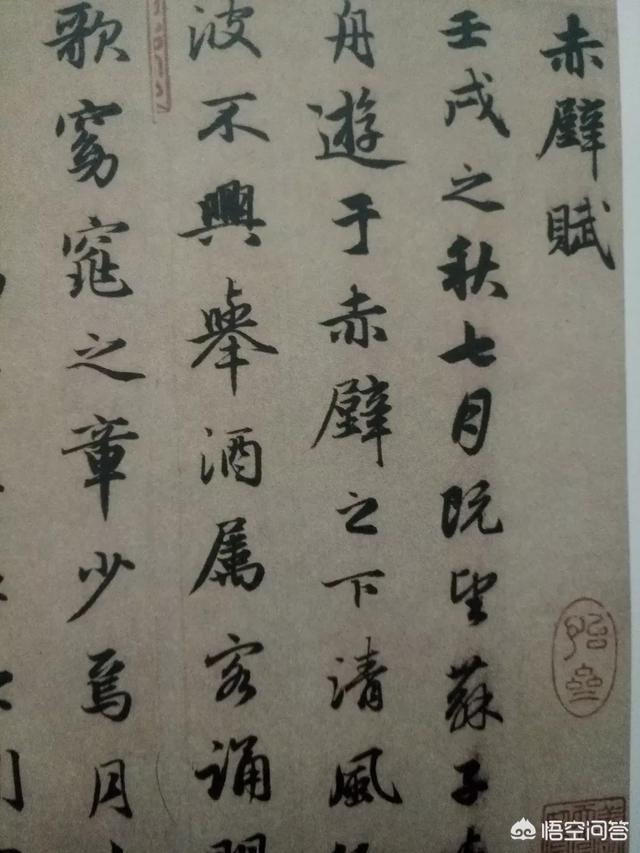 赤壁賦
壬戌之秋七月既望蘇子
舟遊于赤壁之下清風
波不興舉酒属客誦明
歌窈窕之章少焉月
悟空问答